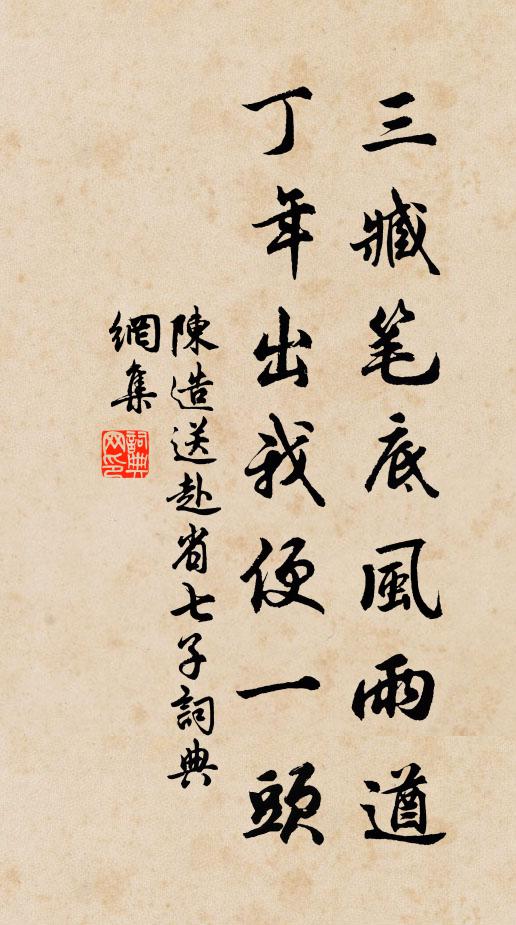 三臧笔底風雨遒
丁年出我便一頭
陳造送赴省七子詞典
網集
詞典
网印